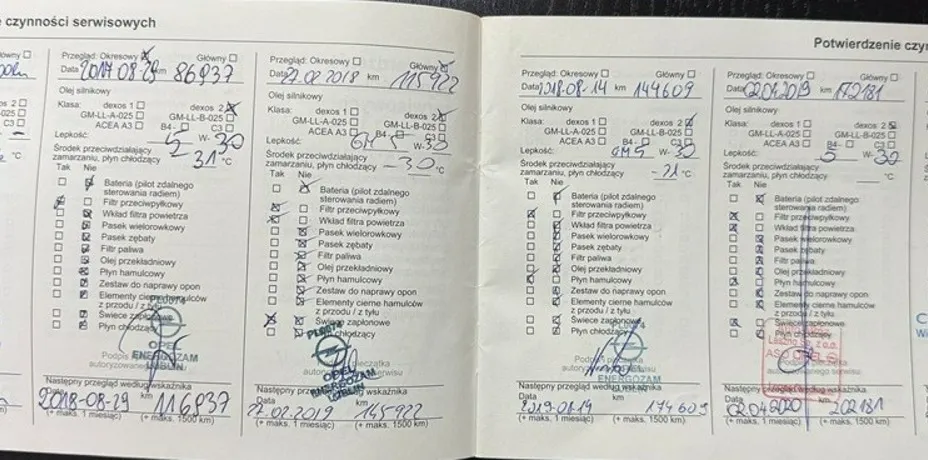 czynności serwisowych
Potwierdzenie
Przegląd: Okresowy Główny
Data 2017 08 29 km 86937
Olej silnikowy
Klasa: dexos 1 dexos 2
GM-LL-A-025 GM-LL-B-025
ACEA A3 B4- C3
Lepkość: 5 W- 30
Środek przeciwdziałający
zamarzaniu, płyn chłodzący 31 °C
Tak Nie
Bateria (pilot zdalnego
sterowania radiem)
Filtr przeciwpyłkowy
Wkład filtra powietrza
Pasek wielorowkowy
Pasek zębaty
Filtr paliwa
Olej przekładniowy
Płyn hamulcowy
Zestaw do naprawy opon
Elementy cierne hamulców
z przodu / z tyłu
Świece zapłonowe
Płyn chłodzący
PL0074
OPEL
ENERGOZAM
LUBLIN
Następny przegląd według wskaźnika
Data km
2018-08-29 116937
(+ maks. 1 miesiąc) (+ maks. 1500 km)
Przegląd: Okresowy Główny
Data 22.02.2018 km 115922
Olej silnikowy
Klasa: dexos 1 dexos 2
GM-LL-A-025 GM-LL-B-025
ACEA A3 B4- C3
Lepkość: GM 5 W- 30
Środek przeciwdziałający
zamarzaniu, płyn chłodzący -30 °C
Tak Nie
Bateria (pilot zdalnego
sterowania radiem)
Filtr przeciwpyłkowy
Wkład filtra powietrza
Pasek wielorowkowy
Pasek zębaty
Filtr paliwa
Olej przekładniowy
Płyn hamulcowy
Zestaw do naprawy opon
Elementy cierne hamulców
z przodu / z tyłu
Świece zapłonowe
chłodzący
PL0074
OPEL
ENERGOZAM
LUBLIN
Następny przegląd według wskaźnika
Data km
22.02.2019 145922
(+ maks. 1 miesiąc) (+ maks. 1500 km)
Przegląd: Okresowy Główny
Data 2018-08-14 km 144609
Olej silnikowy
Klasa: dexos 1 dexos 2
GM-LL-A-025 GM-LL-B-025
ACEA A3 B4- C3
Lepkość: GM 5 W- 30
Środek przeciwdziałający
zamarzaniu, płyn chłodzący -31 °C
Tak Nie
Bateria (pilot zdalnego
sterowania radiem)
Filtr przeciwpyłkowy
Wkład filtra powietrza
Pasek wielorowkowy
Pasek zębaty
Filtr paliwa
Olej przekładniowy
Płyn hamulcowy
Zestaw do naprawy opon
Elementy cierne hamulców
z przodu / z tyłu
Świece zapłonowe
Płyn chłodzący
PL0074
ENERGOZAM
Następny przegląd według wskaźnika
Data km
174609
(+ maks. 1 miesiąc) (+ maks. 1500 km)
Przegląd: Okresowy Główny
Data 02.04.2019 km 172181
Olej silnikowy
Klasa: dexos 1 dexos 2
GM-LL-A-025 GM-LL-B-025
ACEA A3 B4- C3
Lepkość: 5 W- 30
Środek przeciwdziałający
zamarzaniu, płyn chłodzący °C
Tak Nie
Bateria (pilot zdalnego
sterowania radiem)
Filtr przeciwpyłkowy
Wkład filtra powietrza
Pasek wielorowkowy
Pasek zębaty
Filtr paliwa
Olej przekładniowy
Płyn hamulcowy
Zestaw do naprawy opon
Elementy cierne hamulców
z przodu / z tyłu
Świece zapłonowe
Płyn chłodzący
Następny przegląd według wskaźnika
Data km
02.04.2020 202181
(+ maks. 1 miesiąc) (+ maks. 1500 km)